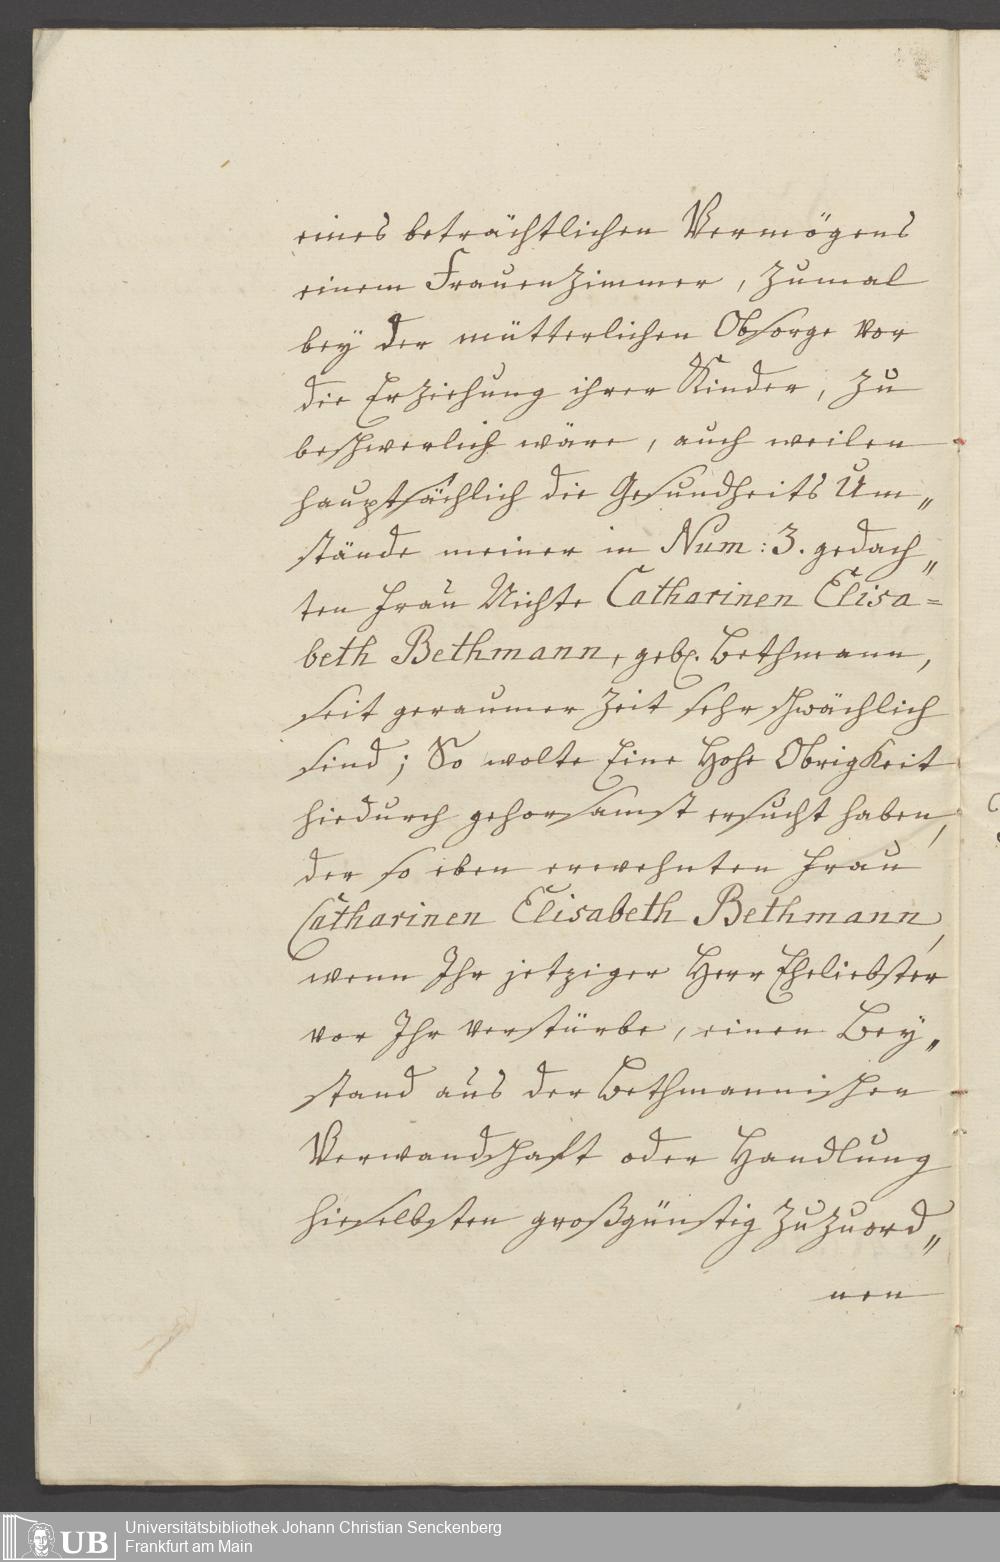 eines beträchtlichen Vermögens
einem Frauenzimmer, zumal
bey der mütterlichen Obsorge vor
die Erziehung ihrer Kinder, zu
beschwerlich wäre, auch weilen
hauptsächlich die Gesundheits Um„
stände meiner in Num: 3. gedach„
ten Frau Nichte Catharinen Elisa=
beth Bethmann, geb. Bethmann,
seit geraumer Zeit sehr schwächlich
sind; So wolte Eine Hohe Obrigkeit
hiedurch gehorsamst ersucht haben,
der so eben erwehnten Frau
Catharinen Elisabeth Bethmann,
wenn Ihr jetziger Herr Eheliebster
vor Ihr verstürbe, einen Bey„
stand aus der Bethmannischen
Verwandschaft oder Handlung
hieselbsten großgünstig zuzuord„
nen
UB
Universitätsbibliothek Johann Christian Senckenberg
Frankfurt am Main